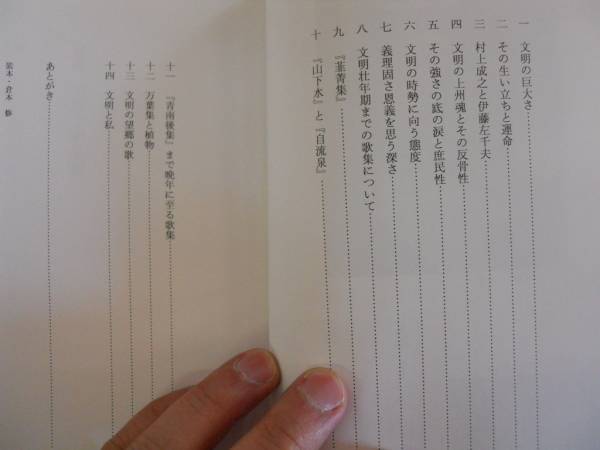 一 文明の巨大さ
二 その生い立ちと運命
三 村上成之と伊藤左千夫
四 文明の上州魂とその反骨性
五 その強さの底の涙と庶民性
六 文明の時勢に向う態度
七 義理固さ恩義を思う深さ
八 文明壮年期までの歌集について
九 『韮菁集』
十 『山下水』と『自流泉』
十一 『青南後集』まで晩年に至る歌集
十二 万葉集と植物
十三 文明の望郷の歌
十四 文明と私
あとがき
装本・倉本 修